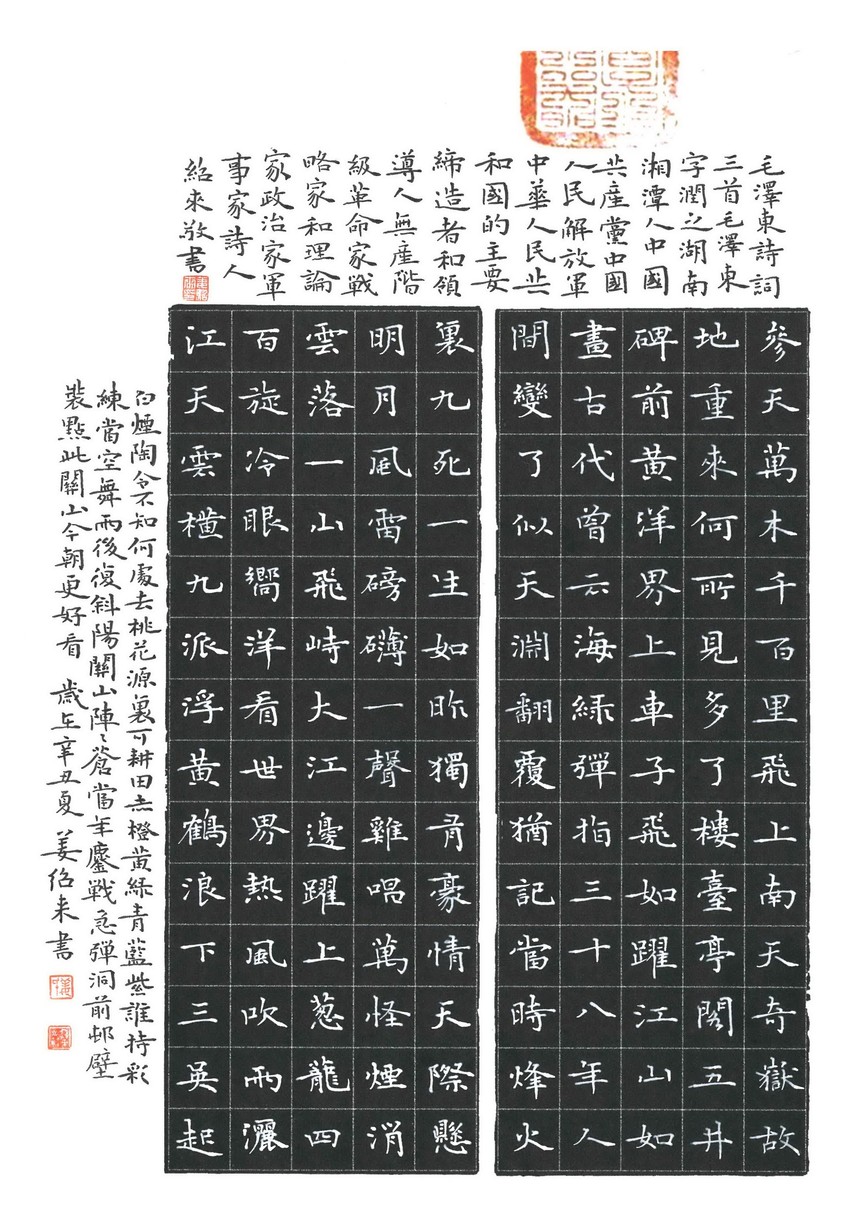 毛澤東詩詞
三首毛澤東
字潤之湖南
湘潭人中國
共產黨中國
人民解放軍
中華人民共
和國的主要
締造者和領
導人無產階
級革命家戰
略家和理論
家政治家軍
事家詩人
紹來敬書
參天萬木千百里飛上南天奇嶽故
地重來何所見多了樓臺亭閣五井
碑前黃洋界上車子飛如躍江山如
畫古代曾云海綠彈指三十八年人
間變了似天淵翻覆猶記當時烽火
裏九死一生如昨獨有豪情天際懸
明月風雷磅礴一聲雞唱萬怪煙消
雲落一山飛峙大江邊躍上葱龍四
百旋冷眼嚮洋看世界熱風吹雨灑
江天雲橫九派浮黃鶴浪下三吳起
白煙陶令不知何處去桃花源裏可耕田赤橙黃綠青藍紫誰持彩
練當空舞雨後復斜陽關山陣〻蒼當年鏖戰急彈洞前邨壁
裝點此關山今朝更好看 歲在辛丑夏 姜紹來書